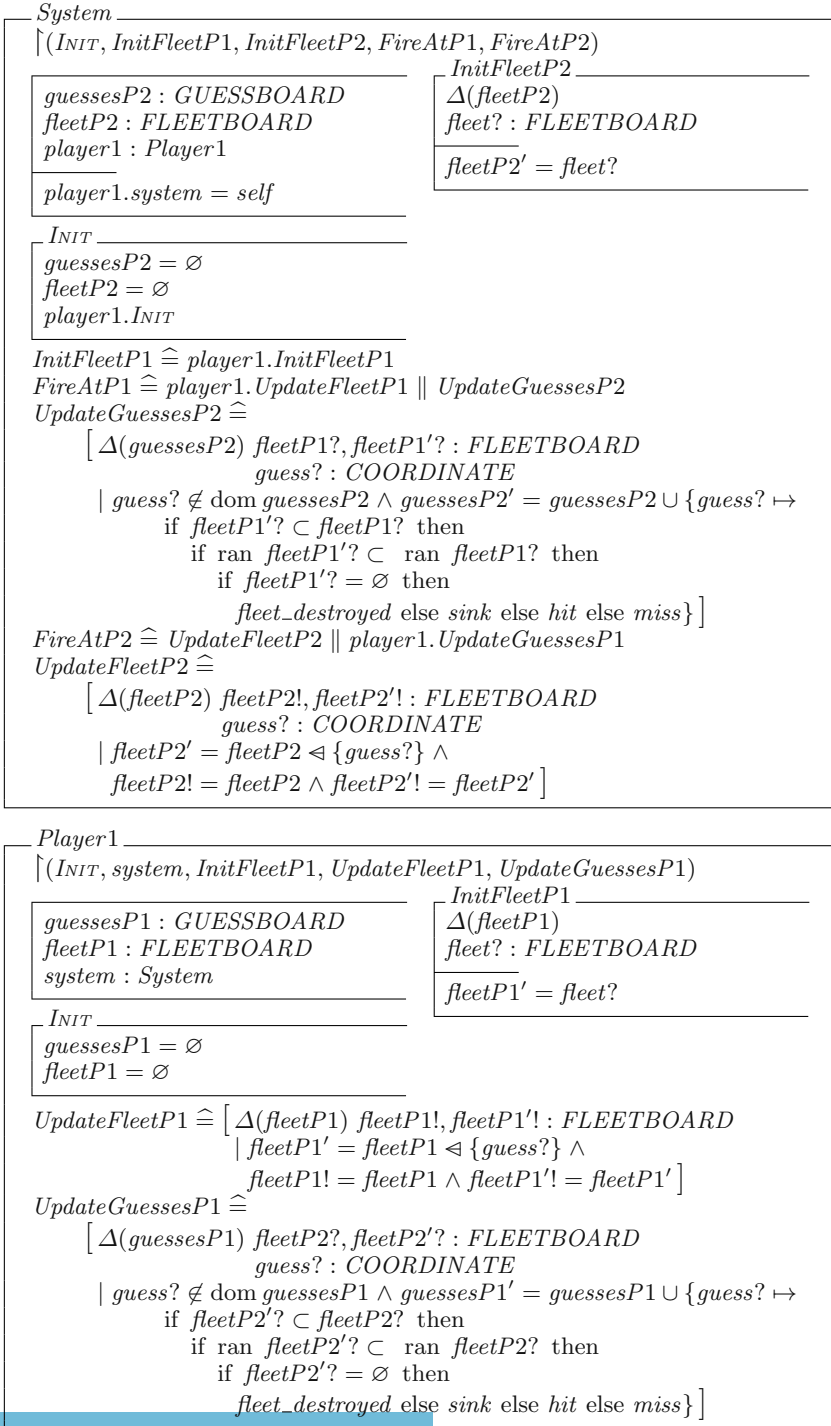 System
↾(INIT, InitFleetP1, InitFleetP2, FireAtP1, FireAtP2)
guessesP2 : GUESSBOARD
fleetP2 : FLEETBOARD
player1 : Player1
player1.system = self
InitFleetP2
Δ(fleetP2)
fleet? : FLEETBOARD
fleetP2′ = fleet?
INIT
guessesP2 = ∅
fleetP2 = ∅
player1.INIT
InitFleetP1 ≙ player1.InitFleetP1
FireAtP1 ≙ player1.UpdateFleetP1 ∥ UpdateGuessesP2
UpdateGuessesP2 ≙
[ Δ(guessesP2) fleetP1?, fleetP1′? : FLEETBOARD
guess? : COORDINATE
| guess? ∉ dom guessesP2 ∧ guessesP2′ = guessesP2 ∪ {guess? ↦
if fleetP1′? ⊂ fleetP1? then
if ran fleetP1′? ⊂ ran fleetP1? then
if fleetP1′? = ∅ then
fleet_destroyed else sink else hit else miss} ]
FireAtP2 ≙ UpdateFleetP2 ∥ player1.UpdateGuessesP1
UpdateFleetP2 ≙
[ Δ(fleetP2) fleetP2!, fleetP2′! : FLEETBOARD
guess? : COORDINATE
| fleetP2′ = fleetP2 ⩤ {guess?} ∧
fleetP2! = fleetP2 ∧ fleetP2′! = fleetP2′ ]
Player1
↾(INIT, system, InitFleetP1, UpdateFleetP1, UpdateGuessesP1)
guessesP1 : GUESSBOARD
fleetP1 : FLEETBOARD
system : System
InitFleetP1
Δ(fleetP1)
fleet? : FLEETBOARD
fleetP1′ = fleet?
INIT
guessesP1 = ∅
fleetP1 = ∅
UpdateFleetP1 ≙ [ Δ(fleetP1) fleetP1!, fleetP1′! : FLEETBOARD
| fleetP1′ = fleetP1 ⩤ {guess?} ∧
fleetP1! = fleetP1 ∧ fleetP1′! = fleetP1′ ]
UpdateGuessesP1 ≙
[ Δ(guessesP1) fleetP2?, fleetP2′? : FLEETBOARD
guess? : COORDINATE
| guess? ∉ dom guessesP1 ∧ guessesP1′ = guessesP1 ∪ {guess? ↦
if fleetP2′? ⊂ fleetP2? then
if ran fleetP2′? ⊂ ran fleetP2? then
if fleetP2′? = ∅ then
fleet_destroyed else sink else hit else miss} ]